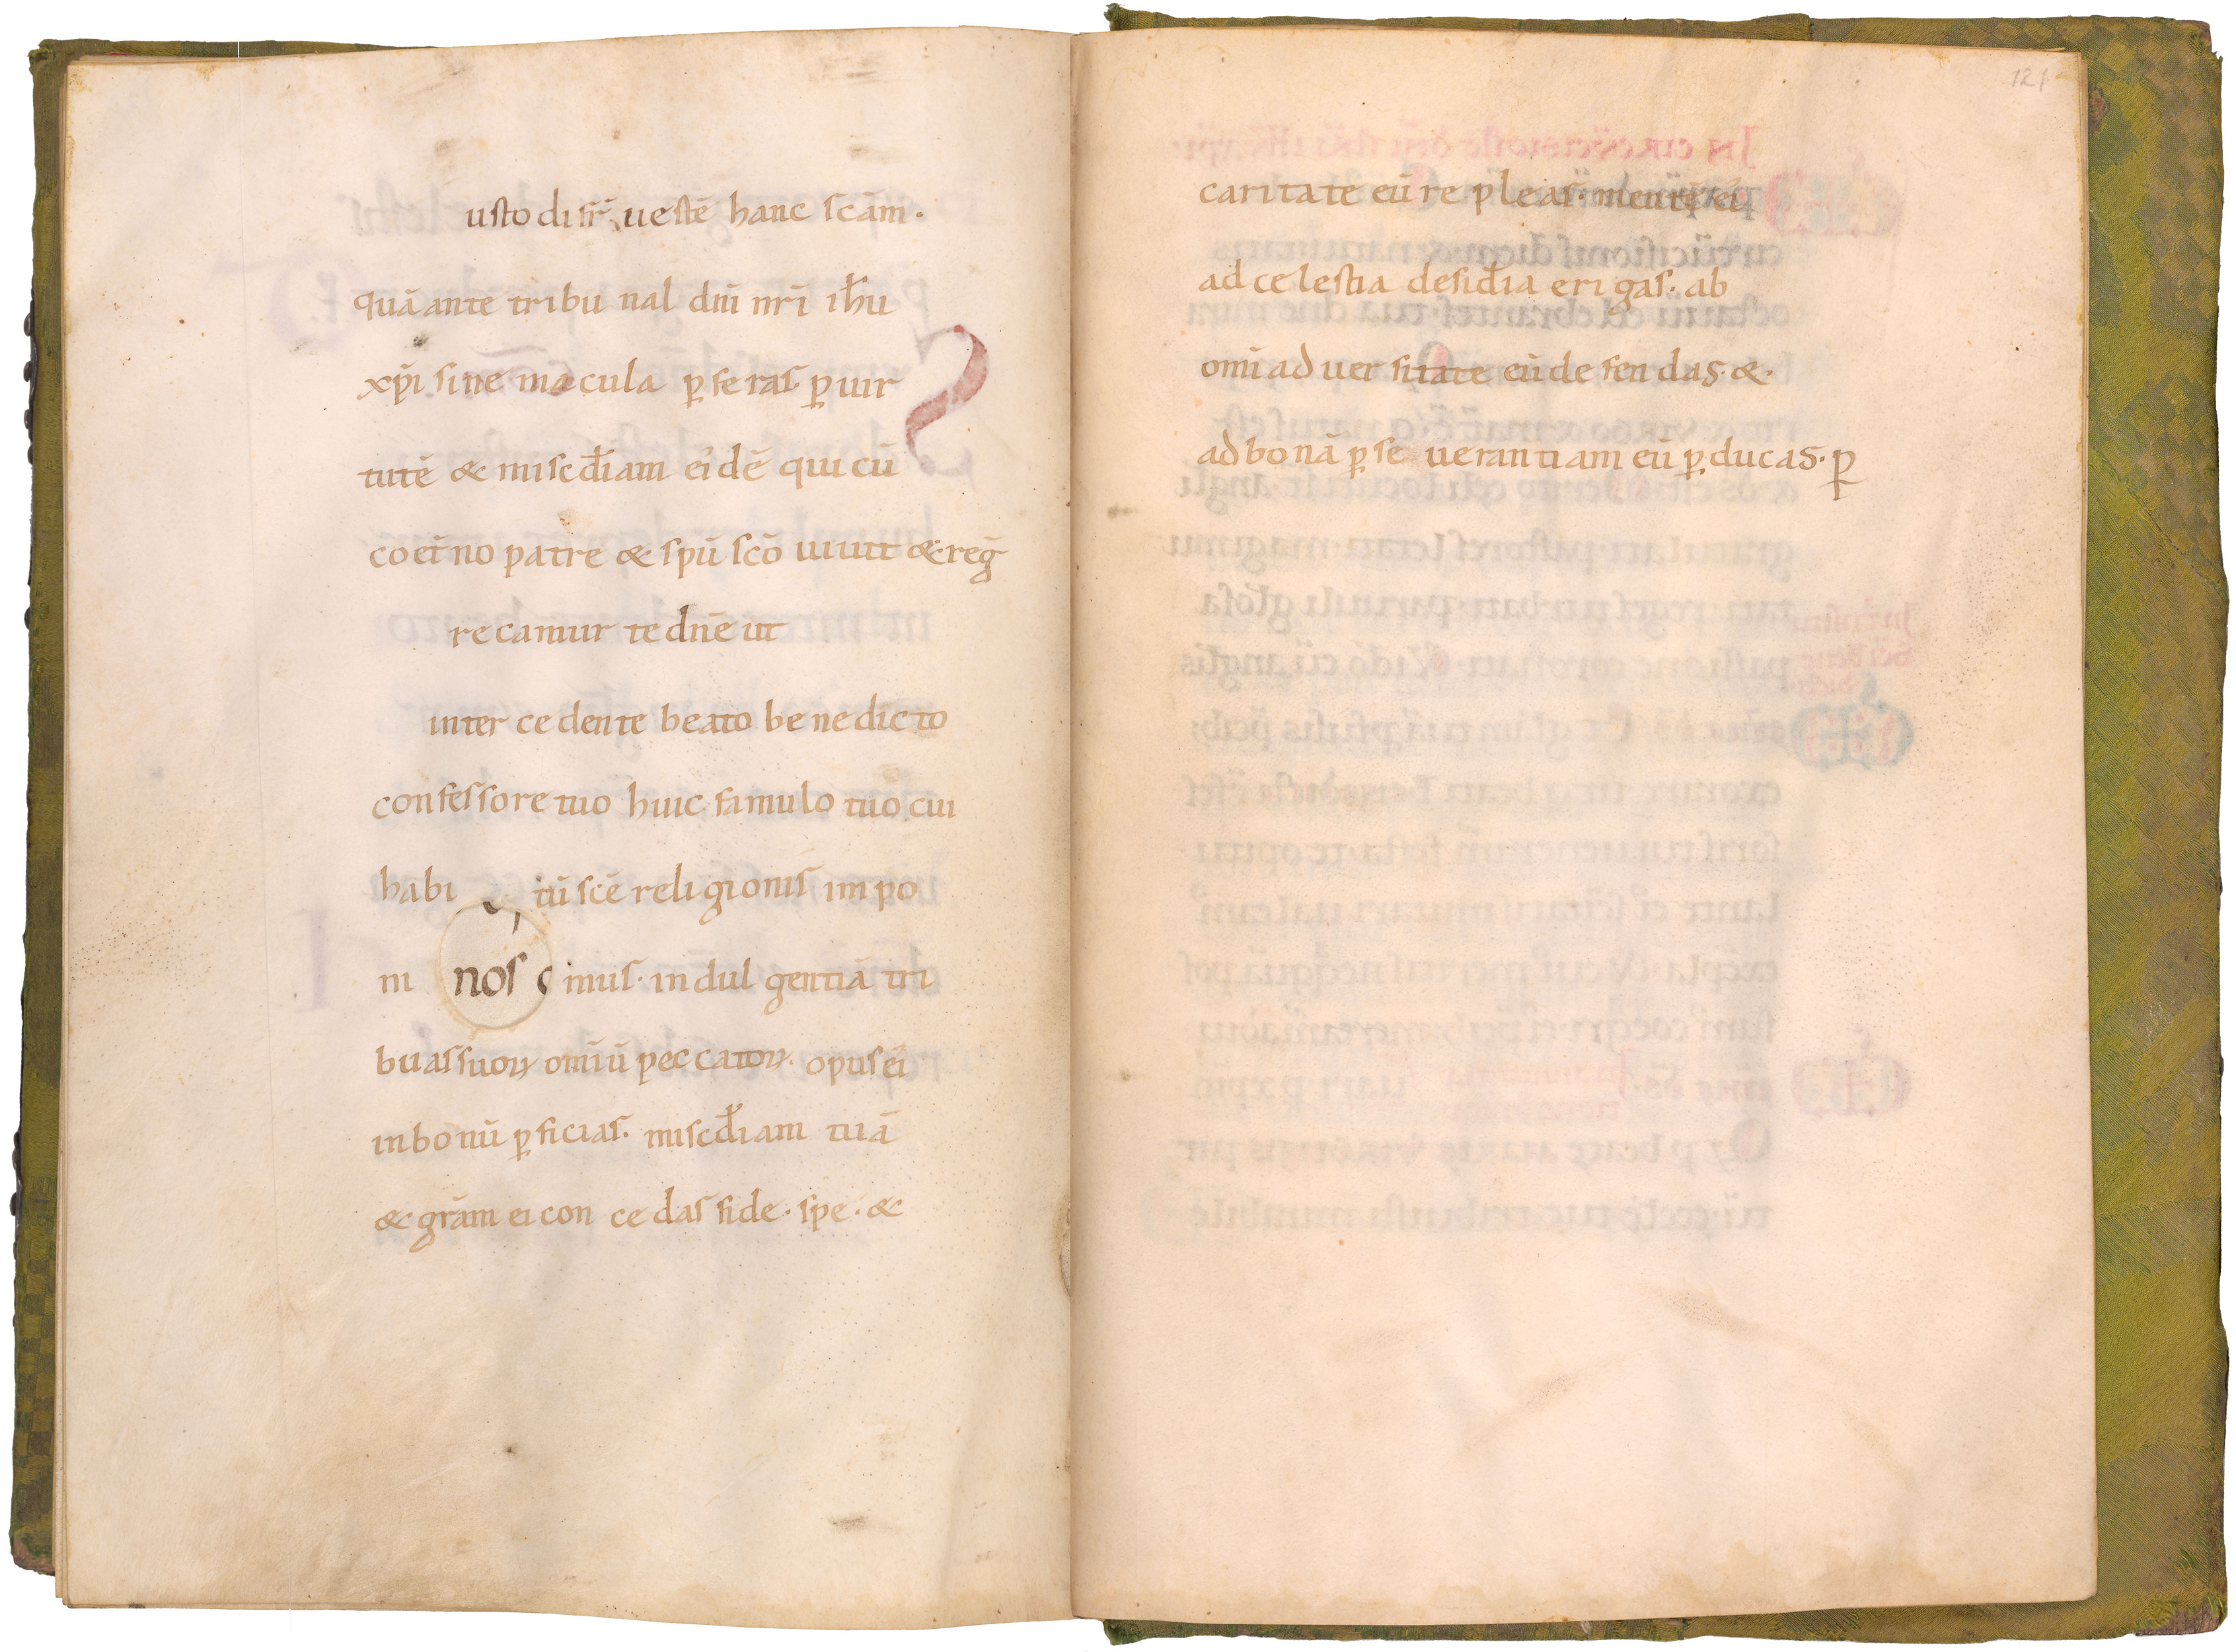 usto di fr̄ uestē hanc scām.
quā ante tribu nal dn̄i nr̄i ih̄u
xp̄i sine macula ꝑ feras. ꝑ uir
tutē & miscd̄iam ei dē qui cū
co et̄no patre & sp̄u scō uiuit & reḡ
recamur te dn̄e ut
inter ce dente beato be ne dic to
confessore tuo huic famulo tuo cui
habi tū scē reli gionis im po
ni nos mus. in dul gentiā tri
bu as suoꝝ om̄iū pec catoꝝ. opus ei
in bo nū ꝑ ficias. miscd̄iam tuā
& grām ei con ce das fide. spe. &
121
caritate eū re ple as. mentē ei
ad ce lestia desid̄ia eri gas. ab
om̄i ad uer sitate eū de fen das. &.
ad bo nā ꝑ se ueran ti am eū ꝑ ducas. ꝑ